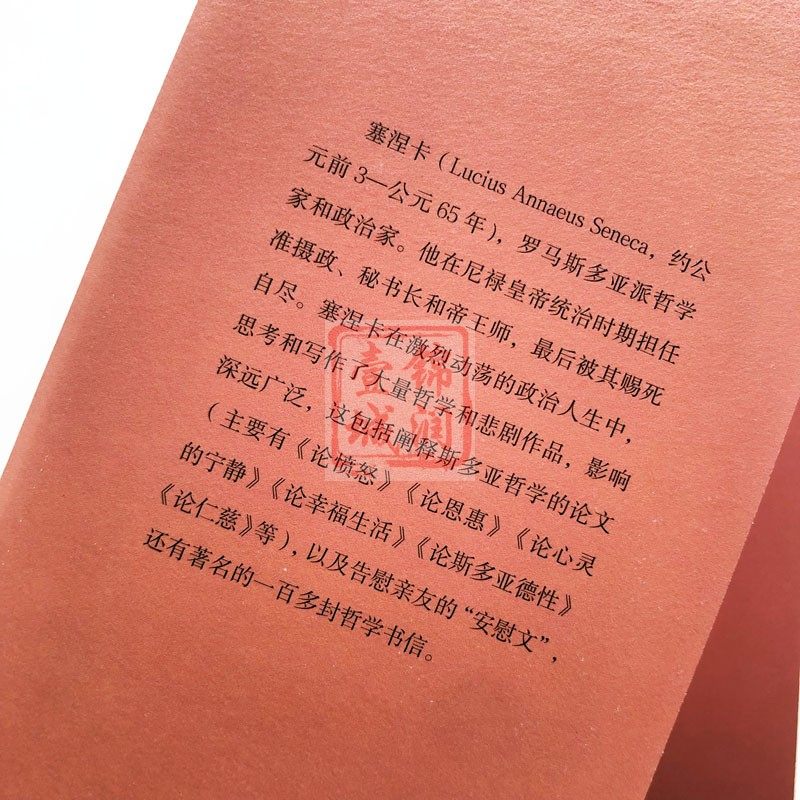 塞涅卡（Lucius Annaeus Seneca，约公
元前3—公元65年），罗马斯多亚派哲学
家和政治家。他在尼禄皇帝统治时期担任
准摄政、秘书长和帝王师，最后被其赐死
自尽。塞涅卡在激烈动荡的政治人生中，
思考和写作了大量哲学和悲剧作品，影响
深远广泛，这包括阐释斯多亚哲学的论文
（主要有《论愤怒》《论恩惠》《论心灵
的宁静》《论幸福生活》《论斯多亚德性》
《论仁慈》等），以及告慰亲友的“安慰文”，
还有著名的一百多封哲学书信。
锦润
壹城